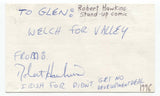 TO GLEN:
Robert Hawkins
Stand-up comic
WELCH FOR VALLEY
FROM
Robert Hawkins
IRISH FOR DIDNT GET NO
DEVELOPMENT DEAL
1996